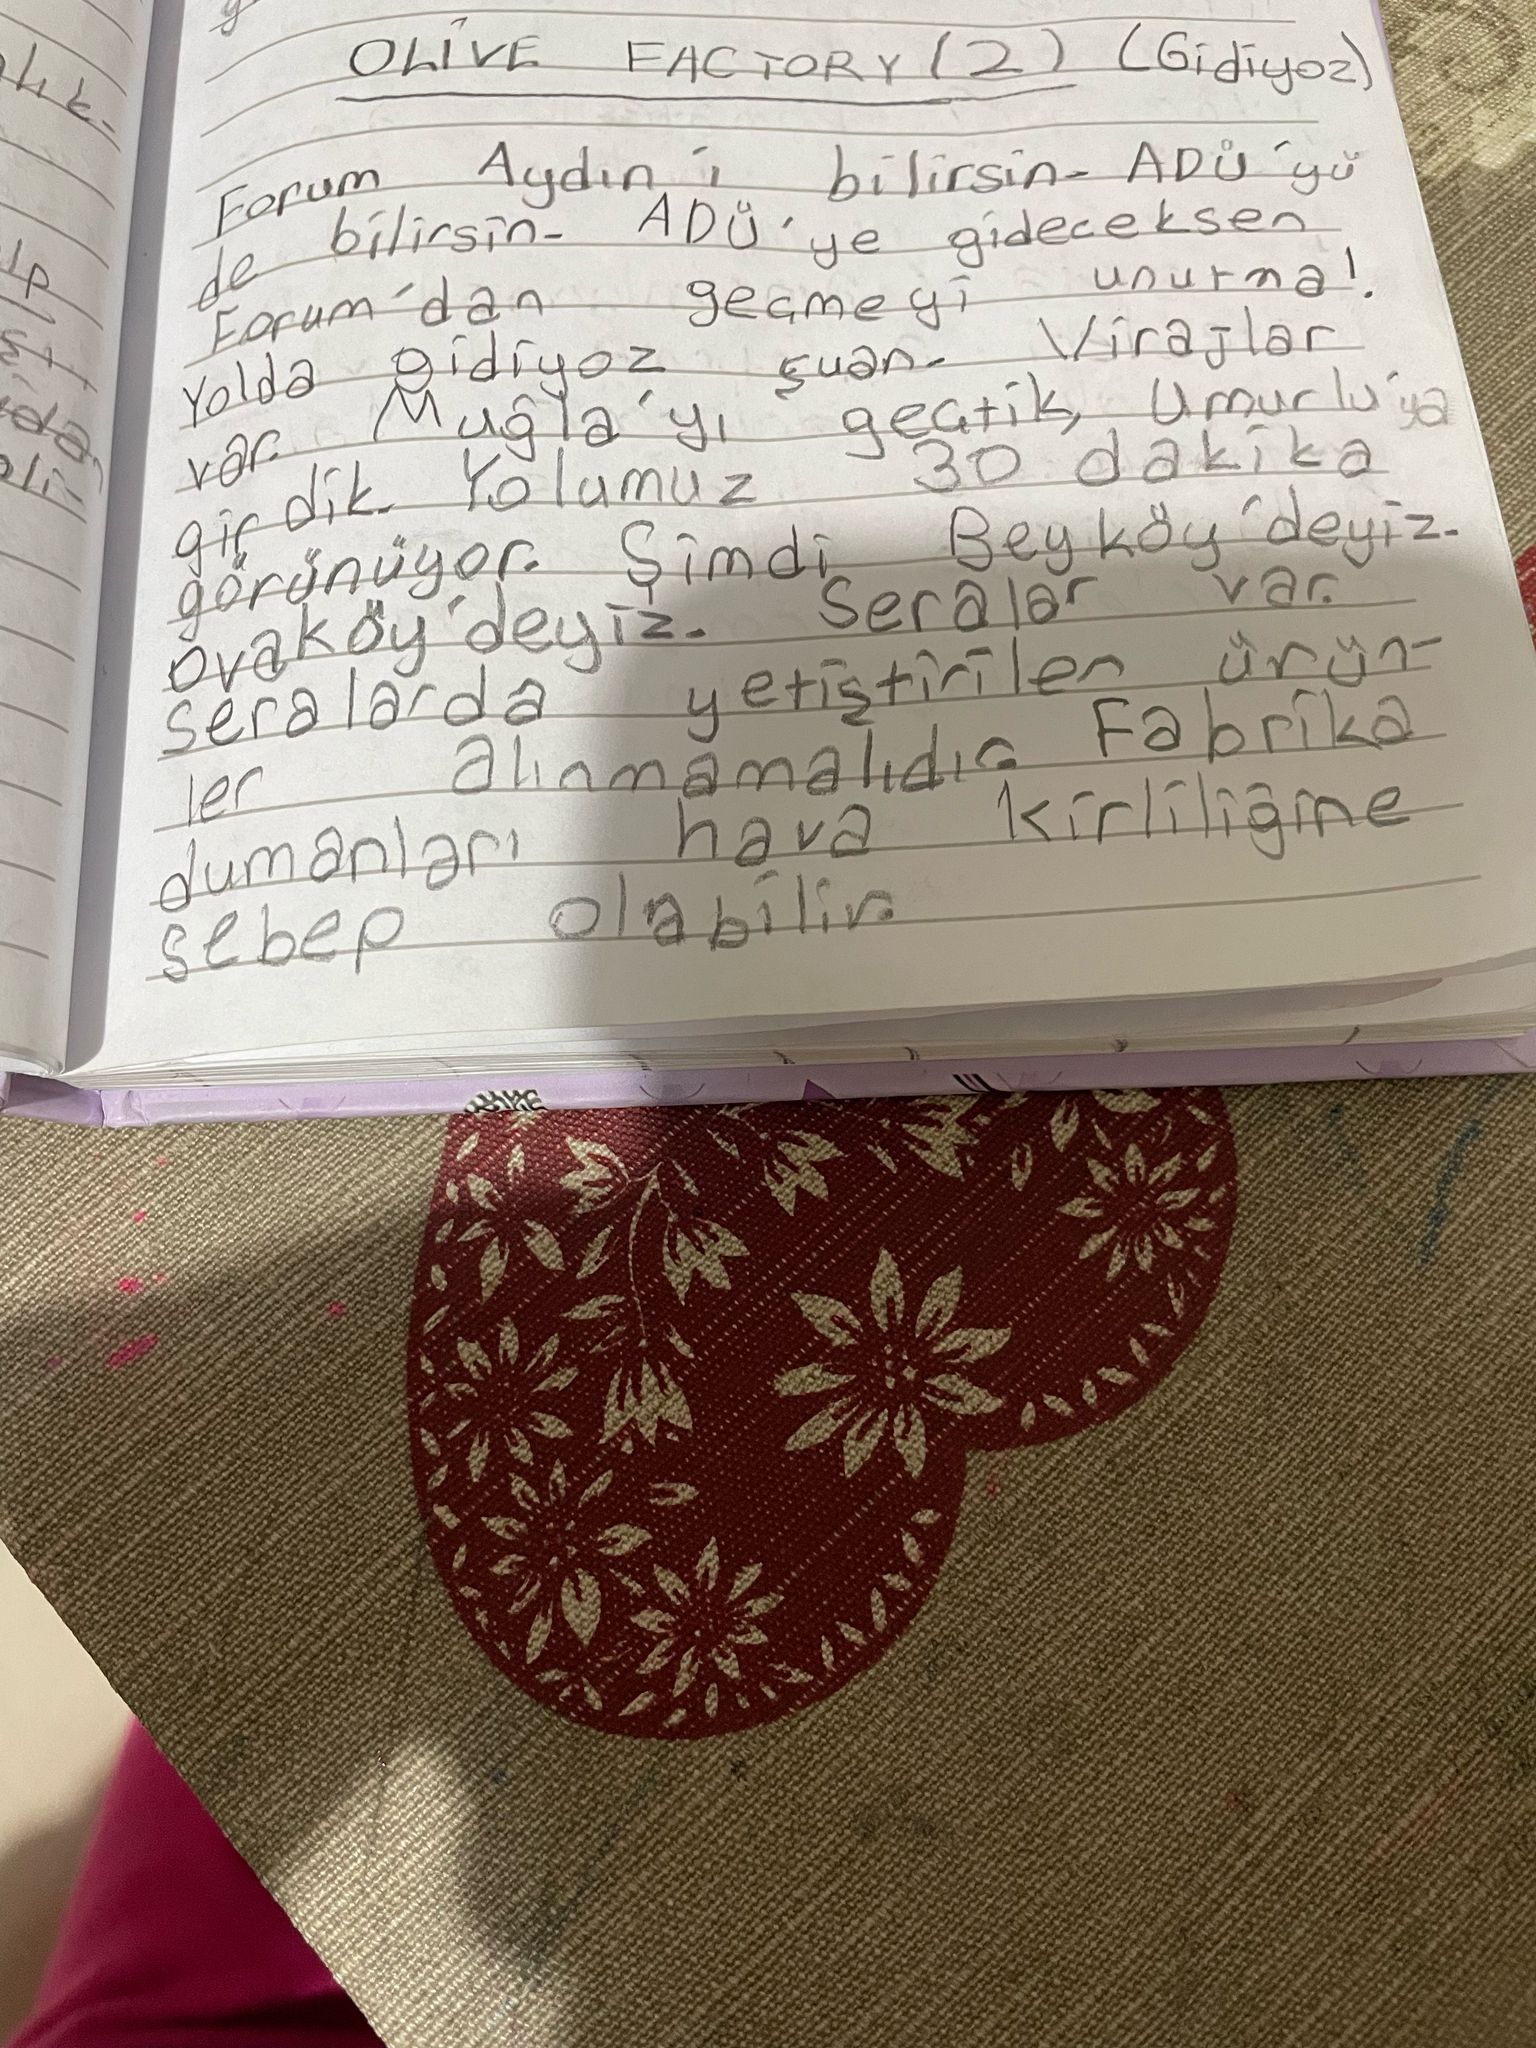 OLİVE FACTORY (2) (Gidiyoz)
Forum Aydın'ı bilirsin. ADÜ'yü
de bilirsin. ADÜ'ye gideceksen
Forum'dan geçmeyi unutma!
Yolda gidiyoz şuan. Virajlar
var. Muğla'yı geçtik, Umurlu'ya
girdik. Yolumuz 30 dakika
görünüyor. Şimdi Beyköy'deyiz.
Ovaköy'deyiz. Seralar var.
Seralarda yetiştirilen ürün-
ler alınmamalıdır. Fabrika
dumanları hava kirliliğine
sebep olabilir.